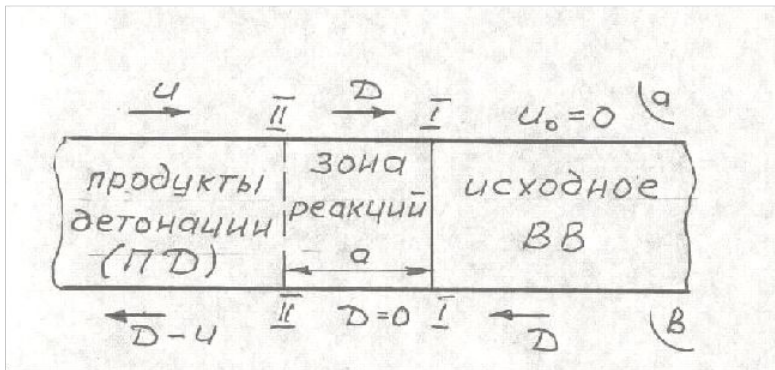 u II D I u₀ = 0 a
продукты
детонации
(ПД)
зона
реакций
a
исходное
ВВ
D-u II D=0 I D в